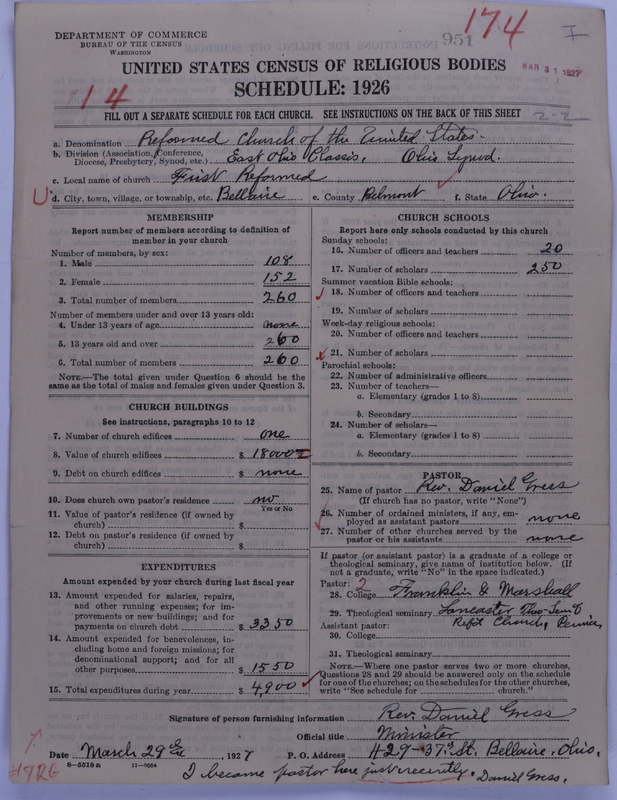 DEPARTMENT OF COMMERCE
BUREAU OF THE CENSUS
WASHINGTON
951
174
I
MAR 31 1927
UNITED STATES CENSUS OF RELIGIOUS BODIES
SCHEDULE: 1926
14
FILL OUT A SEPARATE SCHEDULE FOR EACH CHURCH. SEE INSTRUCTIONS ON THE BACK OF THIS SHEET
2-2
a. Denomination Reformed Church of the United States.
b. Division (Association, Conference, Diocese, Presbytery, Synod, etc.) East Ohio Classis, Ohio Synod.
c. Local name of church First Reformed
d. City, town, village, or township, etc. Bellaire e. County Belmont f. State Ohio.
MEMBERSHIP
Report number of members according to definition of
member in your church
Number of members, by sex:
1. Male 108
2. Female 152
3. Total number of members 260
Number of members under and over 13 years old:
4. Under 13 years of age none
5. 13 years old and over 260
6. Total number of members 260
NOTE.—The total given under Question 6 should be the
same as the total of males and females given under Question 3.
CHURCH BUILDINGS
See instructions, paragraphs 10 to 12
7. Number of church edifices one
8. Value of church edifices $ 18000
9. Debt on church edifices $ none
10. Does church own pastor's residence no
Yes or No
11. Value of pastor's residence (if owned by
church) $
12. Debt on pastor's residence (if owned by
church) $
EXPENDITURES
Amount expended by your church during last fiscal year
13. Amount expended for salaries, repairs,
and other running expenses; for im-
provements on new buildings; and for
payments on church debt $ 3350
14. Amount expended for benevolences, in-
cluding home and foreign missions; for
denominational support; and for all
other purposes $ 1550
15. Total expenditures during year $ 4,900
CHURCH SCHOOLS
Report here only schools conducted by this church
Sunday schools:
16. Number of officers and teachers 20
17. Number of scholars 250
Summer vacation Bible schools:
18. Number of officers and teachers
19. Number of scholars
Week-day religious schools:
20. Number of officers and teachers
21. Number of scholars
Parochial schools:
22. Number of administrative officers
23. Number of teachers—
a. Elementary (grades 1 to 8)
b. Secondary
24. Number of scholars—
a. Elementary (grades 1 to 8)
b. Secondary
PASTOR
25. Name of pastor Rev. Daniel Gress
(If church has no pastor, write "None")
26. Number of ordained ministers, if any, em-
ployed as assistant pastors none
27. Number of other churches served by the
pastor or his assistants none
If pastor (or assistant pastor) is a graduate of a college or
theological seminary, give name of institution below. (If
not a graduate, write "No" in the space indicated.)
Pastor: 2
28. College Franklin & Marshall
29. Theological seminary Lancaster Theo.
Assistant pastor: Ref'd Church,
30. College
31. Theological seminary
NOTE.—Where one pastor serves two or more churches,
Questions 28 and 29 should be answered only on the schedule
for one of the churches; on the schedules for the other churches,
write "See schedule for church."
Signature of person furnishing information Rev. Daniel Gress
Official title Minister
Date March 29 1927 P. O. Address 429-37th St. Bellaire, Ohio.
8-5518 a 11-9054
1926
I became pastor here just recently. Daniel Gress.